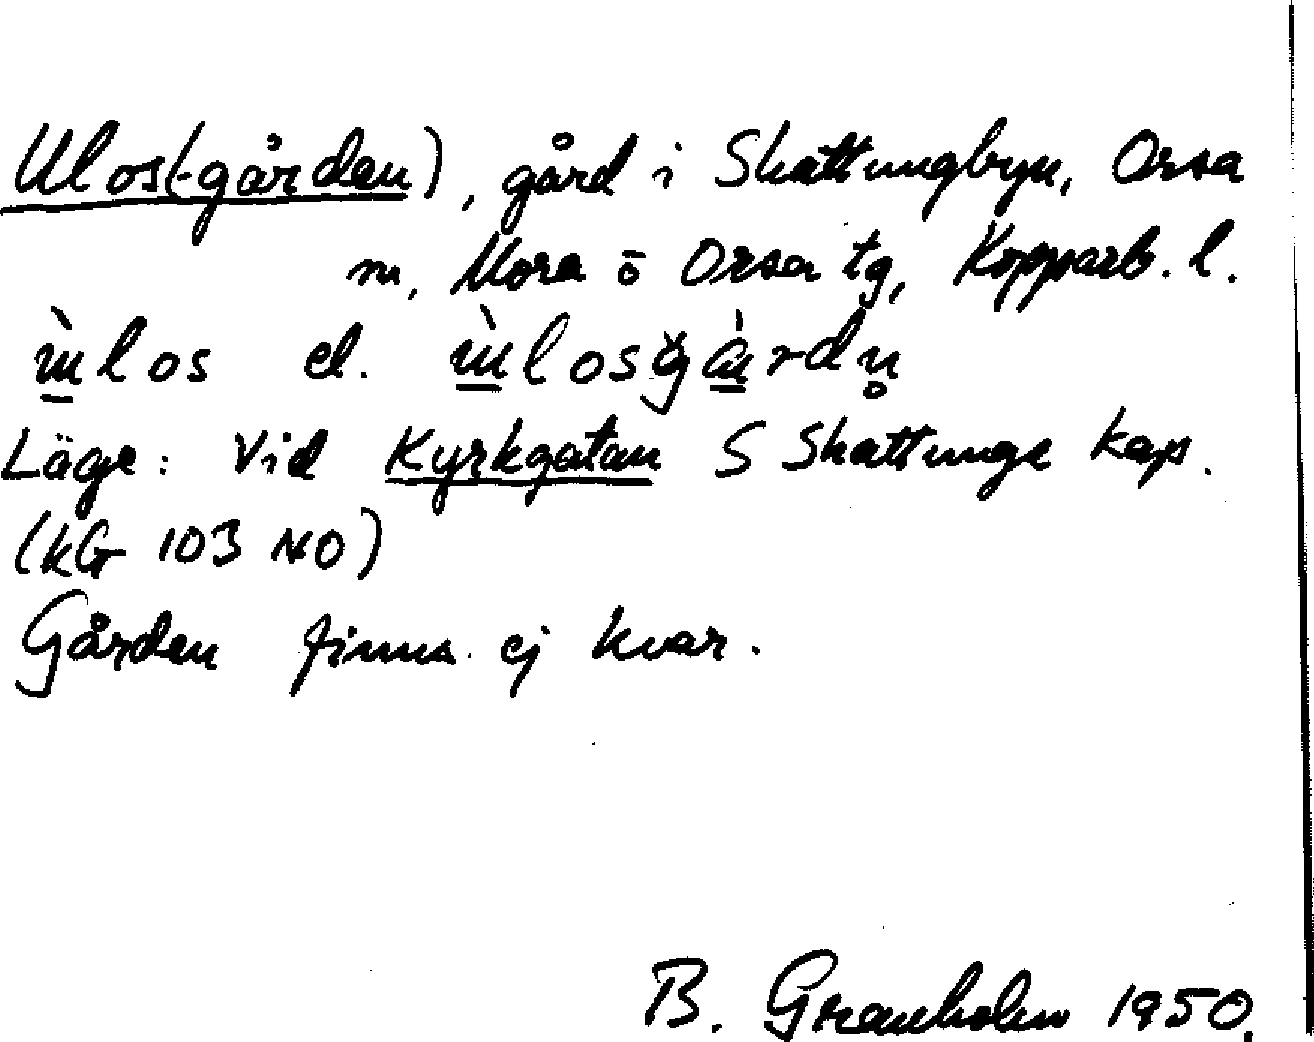 Ulos(-gården), gård i Skattungbyn, Orsa
sn, Mora o Orsa tg, Kopparb. l.
ùlos el. ùlosgàrdn̥
Läge: Vid Kyrkgatan S Skattunge kap.
(kG 103 NO)
Gården finns ej kvar.
B. Granholm 1950.